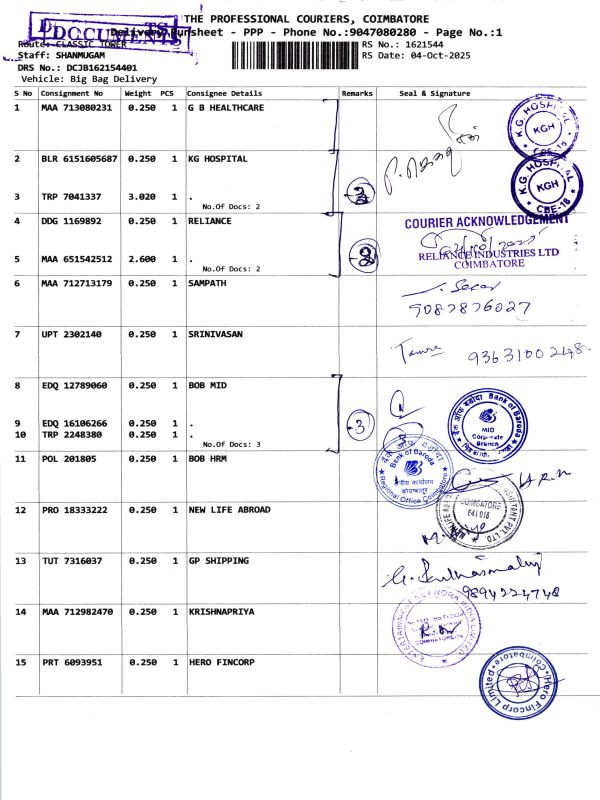 THE PROFESSIONAL COURIERS, COIMBATORE
DOCUMENTS
Delivery Runsheet - PPP - Phone No.:9047080280 - Page No.:1
Route: CLASSIC TOWER
RS No.: 1621544
Staff: SHANMUGAM
RS Date: 04-Oct-2025
DRS No.: DCJB162154401
Vehicle: Big Bag Delivery
S No Consignment No Weight PCS Consignee Details Remarks Seal & Signature
1 MAA 713080231 0.250 1 G B HEALTHCARE
K.G. HOSPITAL
KGH
CBE-18
2 BLR 6151605687 0.250 1 KG HOSPITAL
K.G. HOSPITAL
KGH
CBE-18
3 TRP 7041337 3.020 1 .
No.Of Docs: 2
4 DDG 1169892 0.250 1 RELIANCE
COURIER ACKNOWLEDGEMENT
RELIANCE INDUSTRIES LTD
COIMBATORE
5 MAA 651542512 2.600 1 .
No.Of Docs: 2
6 MAA 712713179 0.250 1 SAMPATH
7 UPT 2302140 0.250 1 SRINIVASAN
8 EDQ 12789060 0.250 1 BOB MID
Bank of Baroda
MID
Corporate
Branch
3
9 EDQ 16106266 0.250 1 .
10 TRP 2248380 0.250 1 .
No.Of Docs: 3
11 POL 201805 0.250 1 BOB HRM
Bank of Baroda
क्षेत्रीय कार्यालय
कोयम्बत्तूर
Regional Office Coimbatore
12 PRO 18333222 0.250 1 NEW LIFE ABROAD
COIMBATORE
641 018
13 TUT 7316037 0.250 1 GP SHIPPING
9894224748
14 MAA 712982470 0.250 1 KRISHNAPRIYA
ENTERTAINMENT NETWORK INDIA LIMITED
15 PRT 6093951 0.250 1 HERO FINCORP
Hero Fincorp Limited
Coimbatore